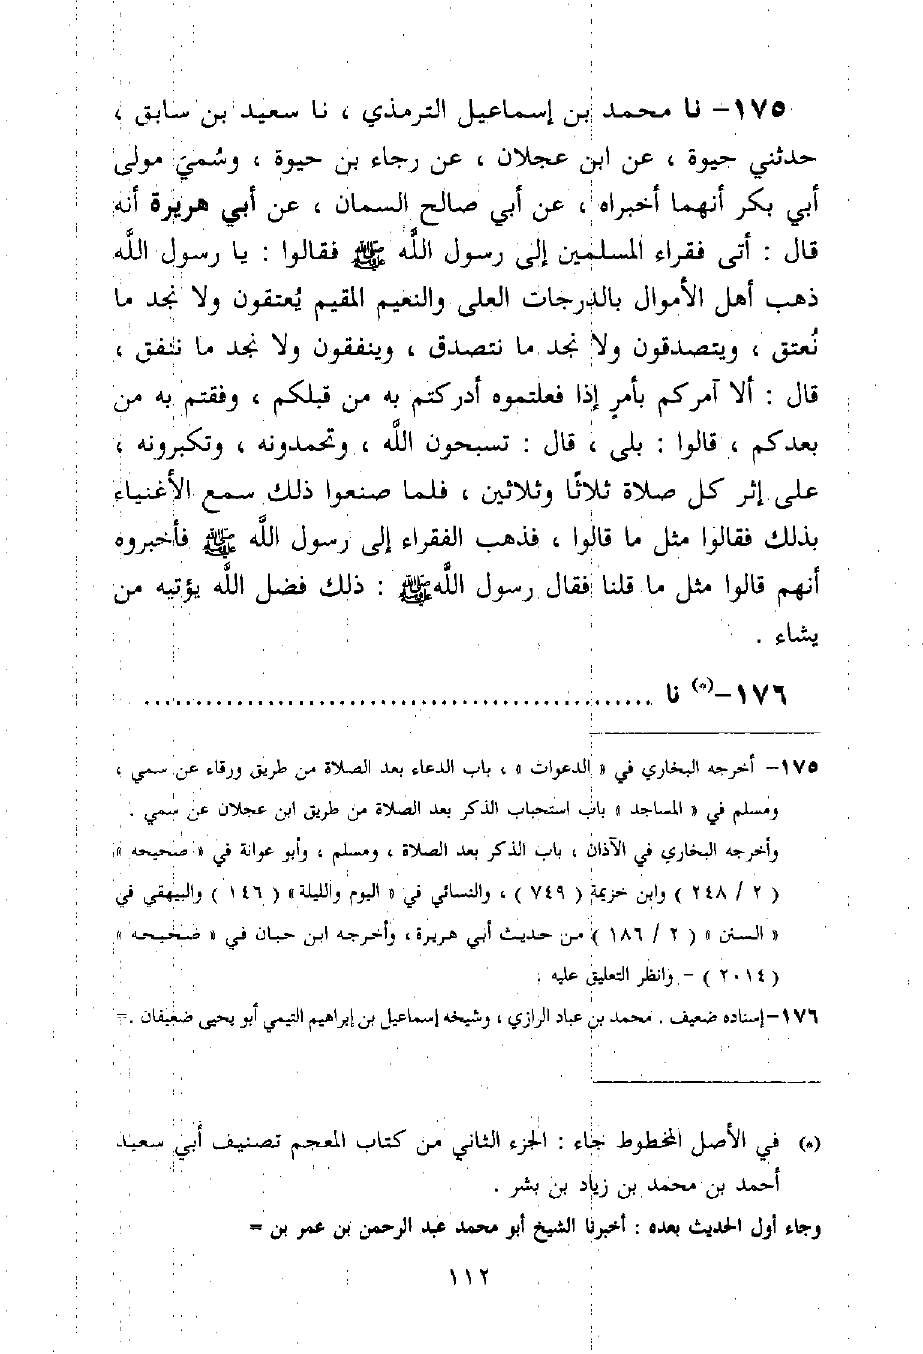 ١٧٥- نا محمد بن إسماعيل الترمذي ، نا سعيد بن سابق ،
حدثني حيوة ، عن ابن عجلان ، عن رجاء بن حيوة ، وسُميّ مولى
أبي بكر أنهما أخبراه ، عن أبي صالح السمان ، عن أبي هريرة أنه
قال : أتى فقراء المسلمين إلى رسول اللَّه ﷺ فقالوا : يا رسول اللَّه
ذهب أهل الأموال بالدرجات العلى والنعيم المقيم يُعتقون ولا نجد ما
نُعتق ، ويتصدقون ولا نجد ما نتصدق ، وينفقون ولا نجد ما ننفق ،
قال : ألا آمركم بأمرٍ إذا فعلتموه أدركتم به من قبلكم ، وفقتم به من
بعدكم ، قالوا : بلى ، قال : تسبحون اللَّه ، وتحمدونه ، وتكبرونه ،
على إثر كل صلاة ثلاثًا وثلاثين ، فلما صنعوا ذلك سمع الأغنياء
بذلك فقالوا مثل ما قالوا ، فذهب الفقراء إلى رسول اللَّه ﷺ فأخبروه
أنهم قالوا مثل ما قلنا فقال رسول اللَّه ﷺ : ذلك فضل اللَّه يؤتيه من
يشاء .
١٧٦-(*) نا ................................................
١٧٥- أخرجه البخاري في « الدعوات » ، باب الدعاء بعد الصلاة من طريق ورقاء عن سمي ،
ومسلم في « المساجد » باب استحباب الذكر بعد الصلاة من طريق ابن عجلان عن سمي .
وأخرجه البخاري في الآذان ، باب الذكر بعد الصلاة ، ومسلم ، وأبو عوانة في « صحيحه »
( ٢ / ٢٤٨ ) وابن خزيمة ( ٧٤٩ ) ، والنسائي في « اليوم والليلة » ( ١٤٦ ) والبيهقي في
« السنن » ( ٢ / ١٨٦ ) من حديث أبي هريرة ، وأخرجه ابن حبان في « صحيحه »
( ٢٠١٤ ) - وانظر التعليق عليه .
١٧٦- إسناده ضعيف . محمد بن عباد الرازي ، وشيخه إسماعيل بن إبراهيم التيمي أبو يحيى ضعيفان . =
(*) في الأصل المخطوط جاء : الجزء الثاني من كتاب المعجم تصنيف أبي سعيد
أحمد بن محمد بن زياد بن بشر .
وجاء أول الحديث بعده : أخبرنا الشيخ أبو محمد عبد الرحمن بن عمر بن =
١١٢